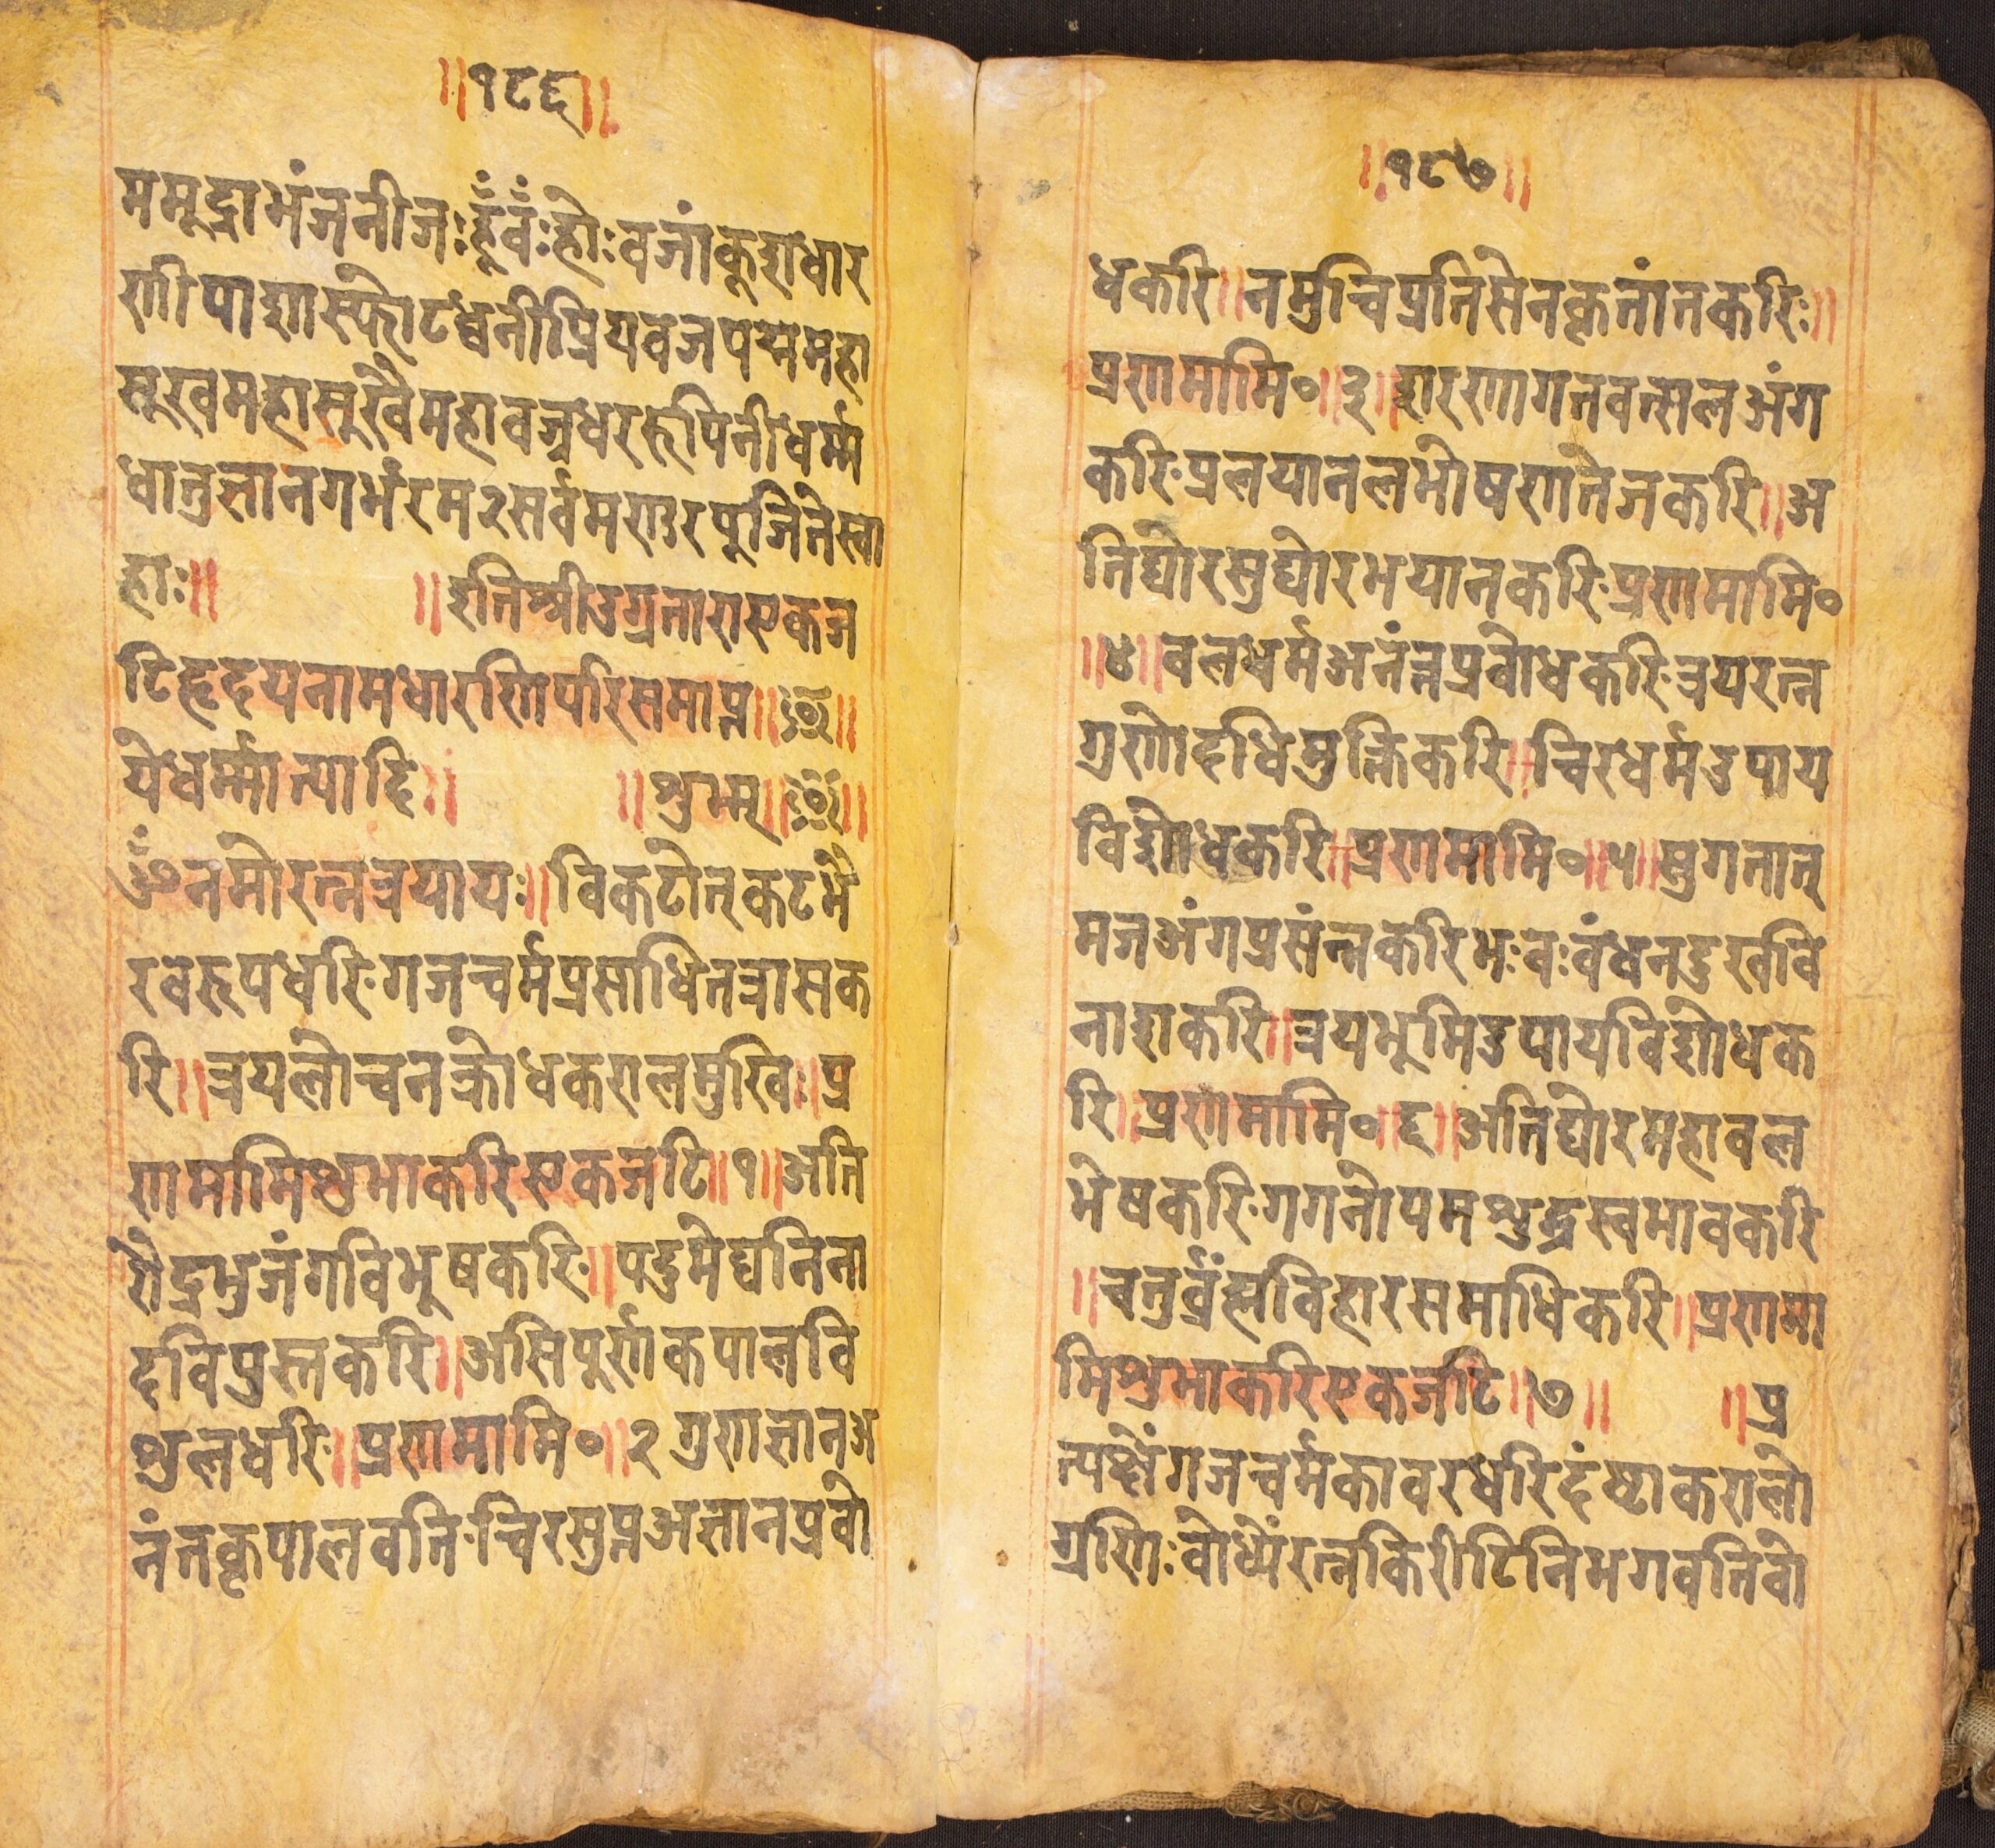 ॥१८६॥
ममूद्राभंजनीजःहूँवँःहोःवजांकूशधार
णीपाशास्फोटध्वनीप्रियवजपद्ममहा
सूखमहासूखैमहावज्रधररूपिनीधर्म्म
धातुज्ञानगर्भंरम२सर्वमण्डरपूजितेस्वा
हाः॥ ॥इतिश्रीउग्रताराएकज
टिहृदयनामधारणिपरिसमाप्त॥
येधर्म्मात्यादि॥ ॥शुभम्॥
ॐनमोरत्नत्रयायः॥विकटोत्कटभै
रवरूपधरिगजचर्मप्रसाधितत्रासक
रि॥त्रयलोचनक्रोधकरालमुखिः॥प्र
णमामिशुभाकरिएकजटि॥१॥अति
रौद्रभुजंगविभूषकरि॥पदुमेघनिना
दविप्रस्तकरि॥असिपूर्णकपालवि
शुलधरि॥प्रणमामि०॥२गुणज्ञानअ
नंतकृपालवतिचिरसुप्तअज्ञानप्रवो
॥१८७॥
धकरि॥नमुचिप्रतिसेनकृतांतकरिः॥
प्रणमामि०॥३॥शरणागतवत्सलअंग
करिप्रलयानलभीषणतेजकरि॥अ
तिघोरसुघोरभयानकरिप्रणमामि०
॥४॥वलधर्मअनंन्तप्रवोधकरित्रयरत्न
गुणोदधिमुक्तिकरि॥चिरधर्मउपाय
विशोधकरि॥प्रणमामि०॥५॥सुगतात्
मजअंगप्रसंन्नकरिभःवःवंधनदुखवि
नाशकरि॥त्रयभूमिउपायविशोधक
रि॥प्रणमामि०॥६॥अतिघोरमहावल
भेषकरिगगनोपमशुद्धस्वभावकरि
॥चतुर्व्रंह्मविहारसमाधिकरि॥प्रणमा
मिशुभाकरिएकजटि॥७॥ ॥प्र
गजचर्मकावरधरिदंष्टाकरालो
ग्रणिःवोध्यैंरत्नकिरीटिनिभगवतिवो